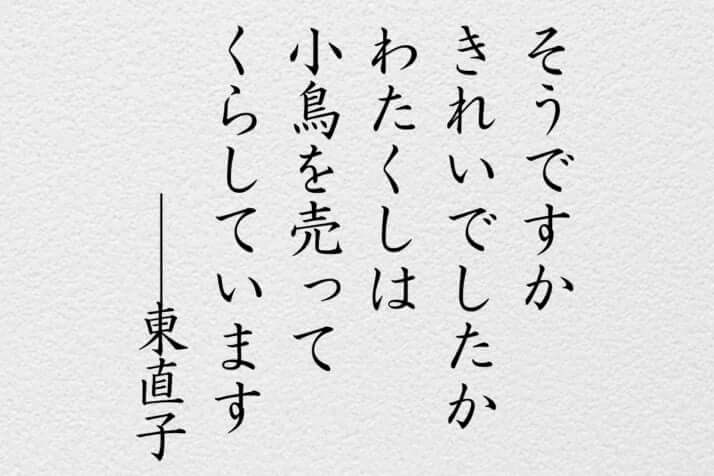 そうですか
きれいでしたか
わたくしは
小鳥を売って
くらしています
——東直子